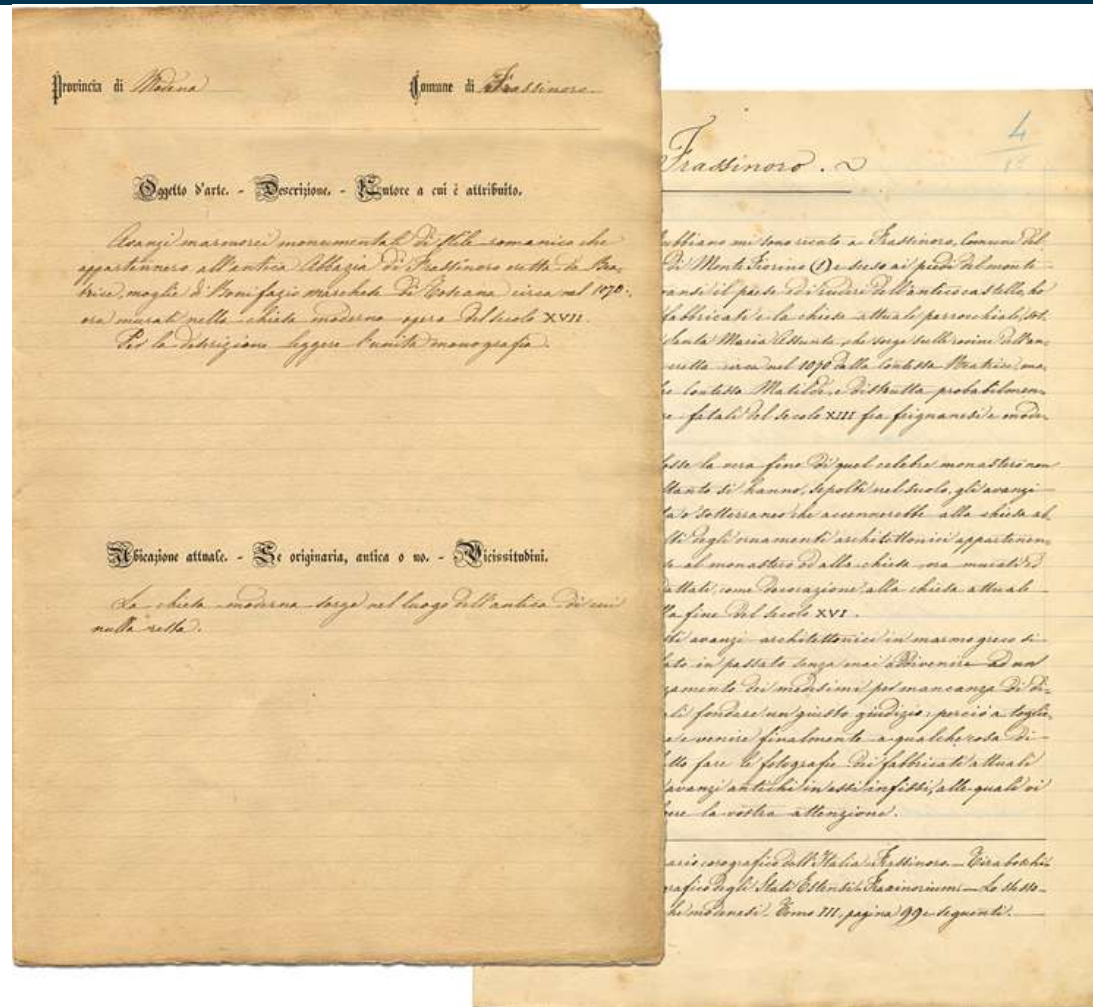 Provincia di Modena
Comune di Frassinoro
Oggetto d'arte. - Descrizione. - Autore a cui è attribuito.
Avanzi marmorei monumentali di stile romanico che
appartennero all'antica Abbazia di Frassinoro eretta da Bea-
trice, moglie di Bonifazio marchese di Toscana circa nel 1070.
ora murati nella chiesa moderna opera del secolo XVII.
Per la descrizione leggere l'unita monografia.
Ubicazione attuale. - Se originaria, antica o no. - Vicissitudini.
La chiesa moderna sorge nel luogo dell'antica di cui
nulla resta.
4
Frassinoro.
mi sono recato a Frassinoro, Comune del
di Monte Fiorino (1) e sceso ai piedi del monte
il paese ed i ruderi dell'antico castello, ho
fabbricati e la chiesa attuale parrocchiale, sot.
Santa Maria Assunta che sorge sulle rovine dell'an.
eretta circa nel 1070 dalla contessa Beatrice, ma,
contessa Matilde, e distrutta probabilmen,
fatali del secolo XIII fra frignanesi e mode,
fosse la vera fine di quel celebre monastero non
tanto si hanno, sepolti nel suolo, gli avanzi
o sotterraneo che accennerebbe alla chiesa ab.
degli ornamenti architettonici appartenen,
al monastero ed alla chiesa ora murati ed
come decorazione, alla chiesa attuale
fine del secolo XVI.
avanzi architettonici in marmo greco si
in passato senza mai addivenire ad un
dei medesimi per mancanza di di-
fondare un giusto giudizio: perciò a toglie,
e venire finalmente a qualche cosa di
fare le fotografie dei fabbricati attuali
avanzi antichi in essi infissi, alle quali vi
la vostra attenzione.
corografico dell'Italia - Frassinoro. - Tiraboschi
degli Stati Estensi - Fraxinorium - Lo stesso
modenesi. Tomo III, pagina 99 e seguenti.